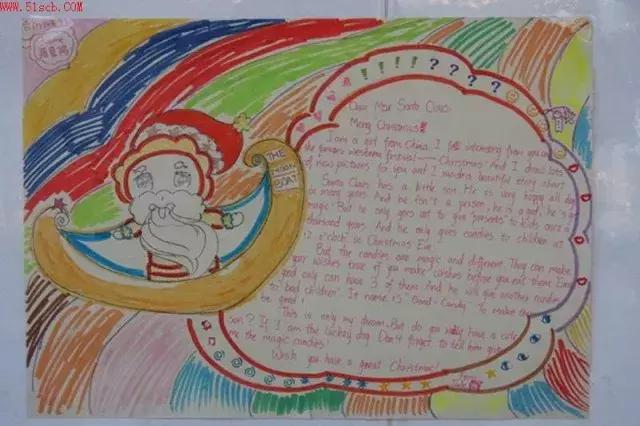 www.51scb.com
THE
MOON
BOAT
!!!!????
Dear Mr Santa Claus:
Merry Christmas!
I am a girl from China. I felt interesting from you and
the famous western festival——Christmas. And I draw lots
of new pictures for you and I made a beautiful story about
Santa Claus has a little son. He is very happy all day
or many years. And he isn't a person, he is a god, he's
magic. But he only goes out to give "presents" to kids once a
thousand years. And he only gives candies to children at
12 o'clock on Christmas Eve.
But, the candies are magic and different. They can make
your wishes true if you make wishes before you eat them. Every
good only can have 3 of them. And he will give another candies
to "bad children". It name is "Good-Candy". To make them
be good!
This is only my dream. But do you really have a cute
son? If I am the lucky dog. Don't forget to tell him give
me the magic candies!
Wish you have a great Christmas!